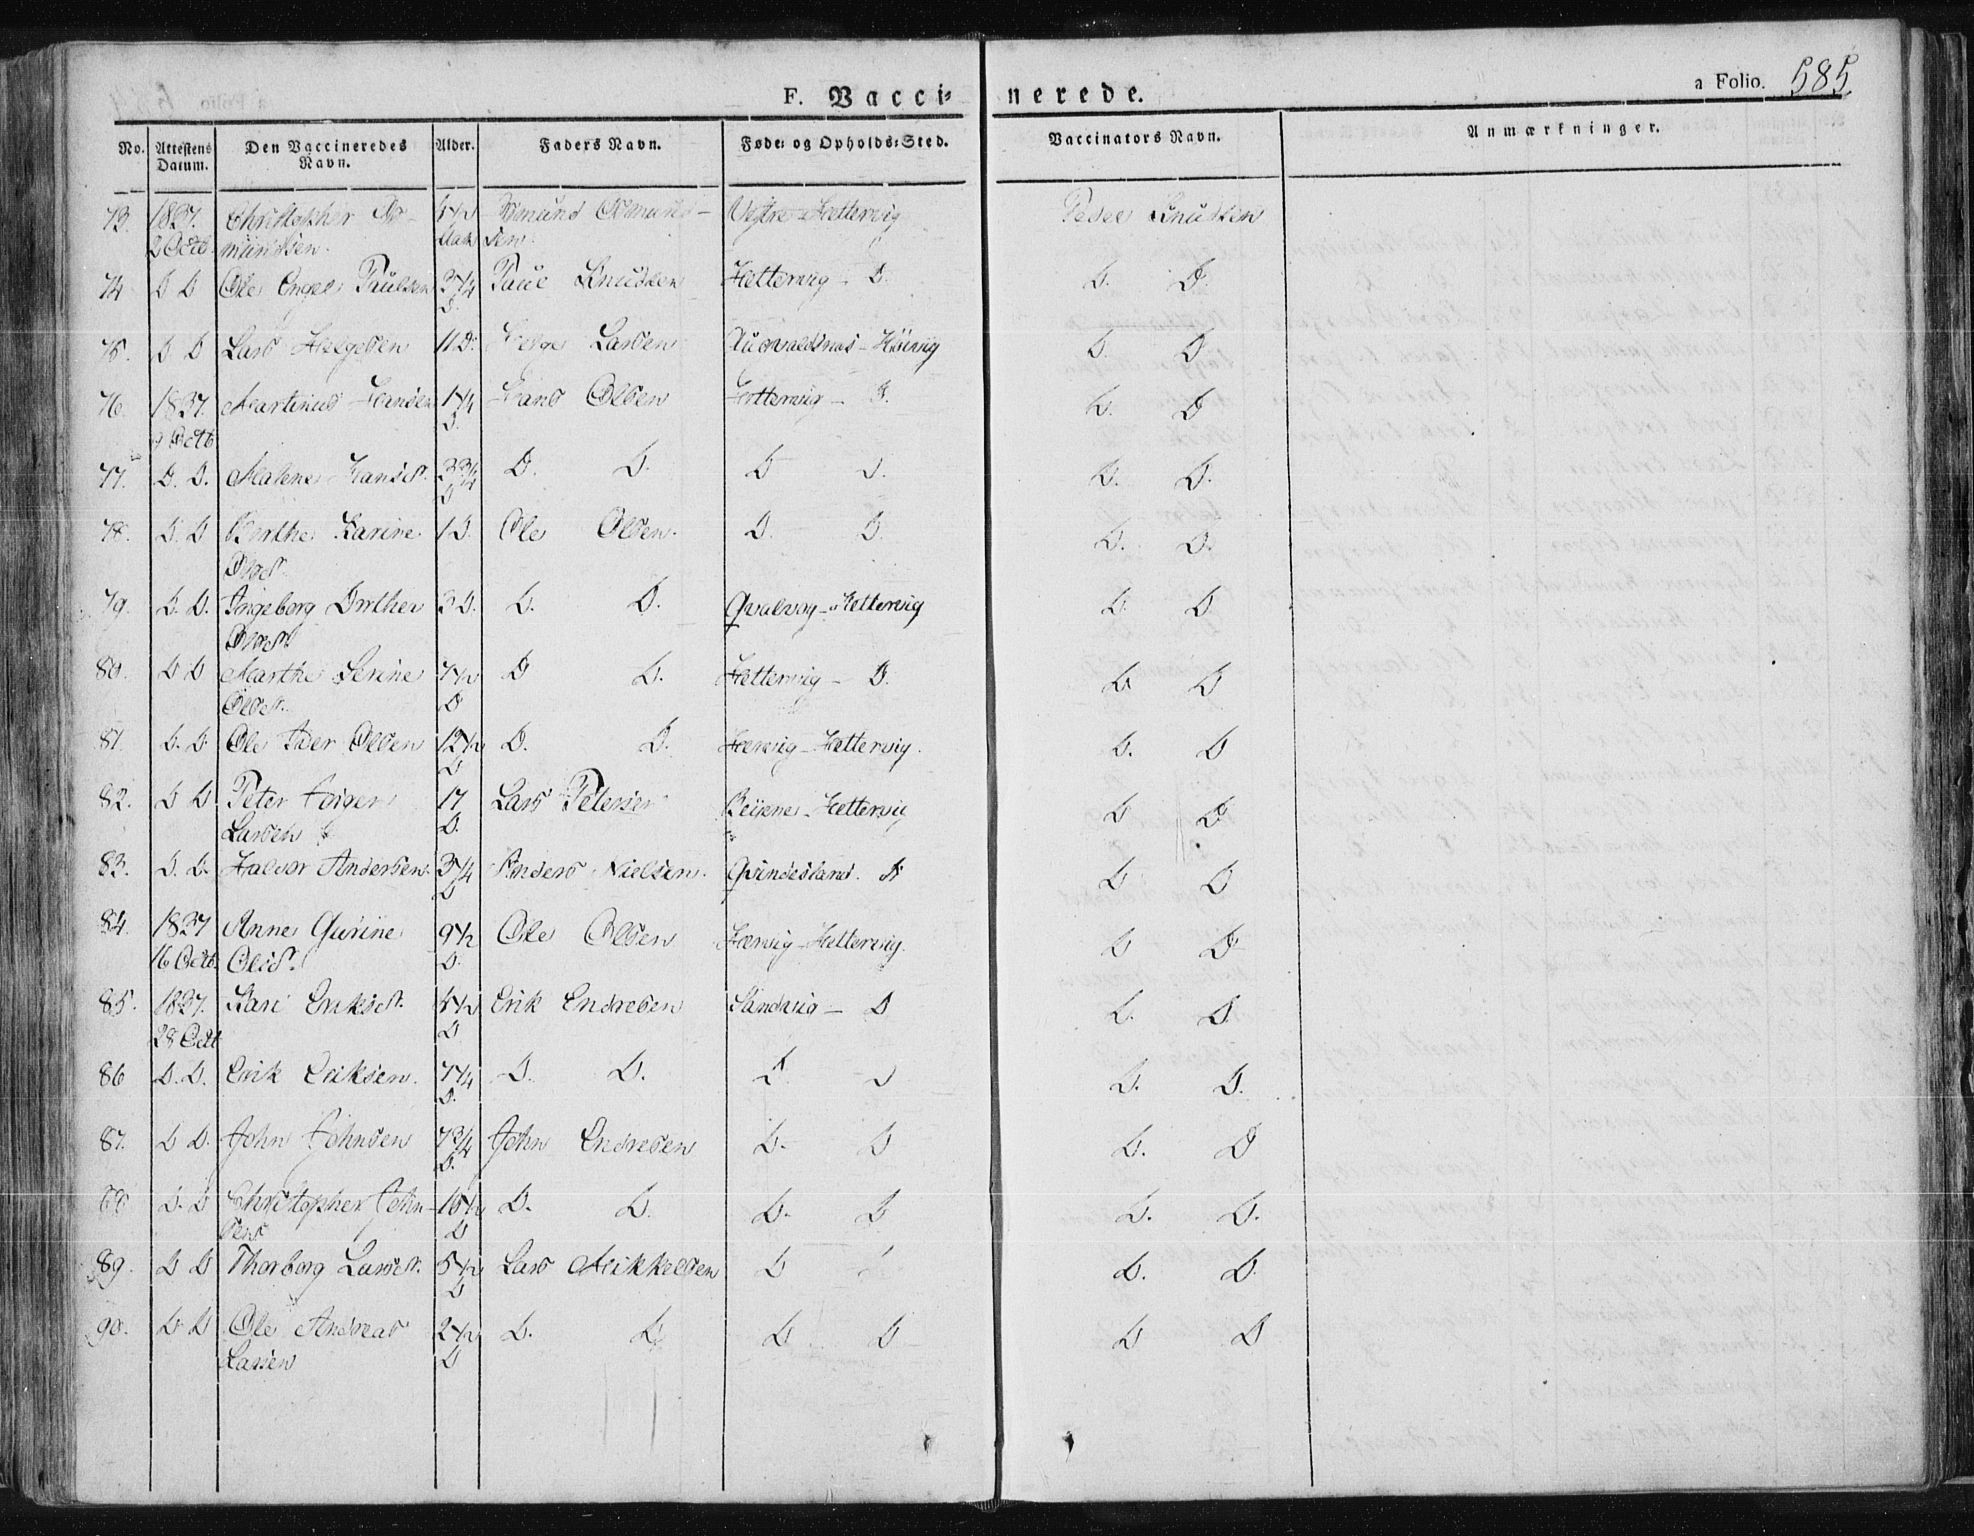 F. Vacci- nerede. a Folio. 585.
No. Attestens Datum. Den Vaccineredes Navn. Alder. Faders Navn. Føde- og Opholds-Sted. Vaccinators Navn. Anmærkninger.
73. 1837. Christopher Os- 5 1/2 Osmund Osmund- Vestre Hettervig Peder Knudsen
2 Octb. mundsen. Aar sen.
74 D D Ole Engel Paulsen 3 1/4 Paul Knudsen Hettervig - D. D. D.
D.
75. D D Lars Helgesen 11 D. Helge Larsen - Høievig D. D
76. 1837. Martinus Hansen 1 1/4 Hans Olsen Hettervig - D. D. D
9 Octb. D.
77. D. D. Malene Hansd. 3 3/4 D. D. D D. D. D.
D
78. D. D Berthe Karine 1 D. Ole Olsen. D. D. D. D.
Olsd.
79. D. D. Ingeborg Dorthea 3 D. D. D. Qvalvaag - Hettervig D. D
Olsd.
80. D D Marthe Serine 7 1/2 D D. Hettervig - D. D D
Olsd. D
81. D. D Ole Iver Olsen 12 1/2 D. D. Hoevig - Hettervig. D. D
D
82. D D Peter Holger 17 Lars Petersen - Hettervig D D.
Larsen D.
83. D. D. Halvor Andersen. 3 1/4 Anders Nielsen. Qvindesland. D D D
D
84. 1837 Anne Gurine 9 1/2 Ole Olsen Hoevig - Hettervig. D D
16 Octb. Olsd. D.
85. 1837. Kari Eriksd. 5 1/2 Erik Endresen Sandvig - D D. D.
28 Octb D
86 D. D. Erik Eriksen. 7 1/4 D. D. D D D. D.
D.
87. D D. John Johnsen 7 3/4 John Endresen D. D D. D
D.
88 D. D Christopher John- 10 1/2 D. D. D. D D. D.
sen D
89. D D Thorborg Larsd. 5 1/2 Lars Mikkelsen D D D. D.
D
90. D D Ole Andreas 2 1/2 D. D. D D D D
Larsen D